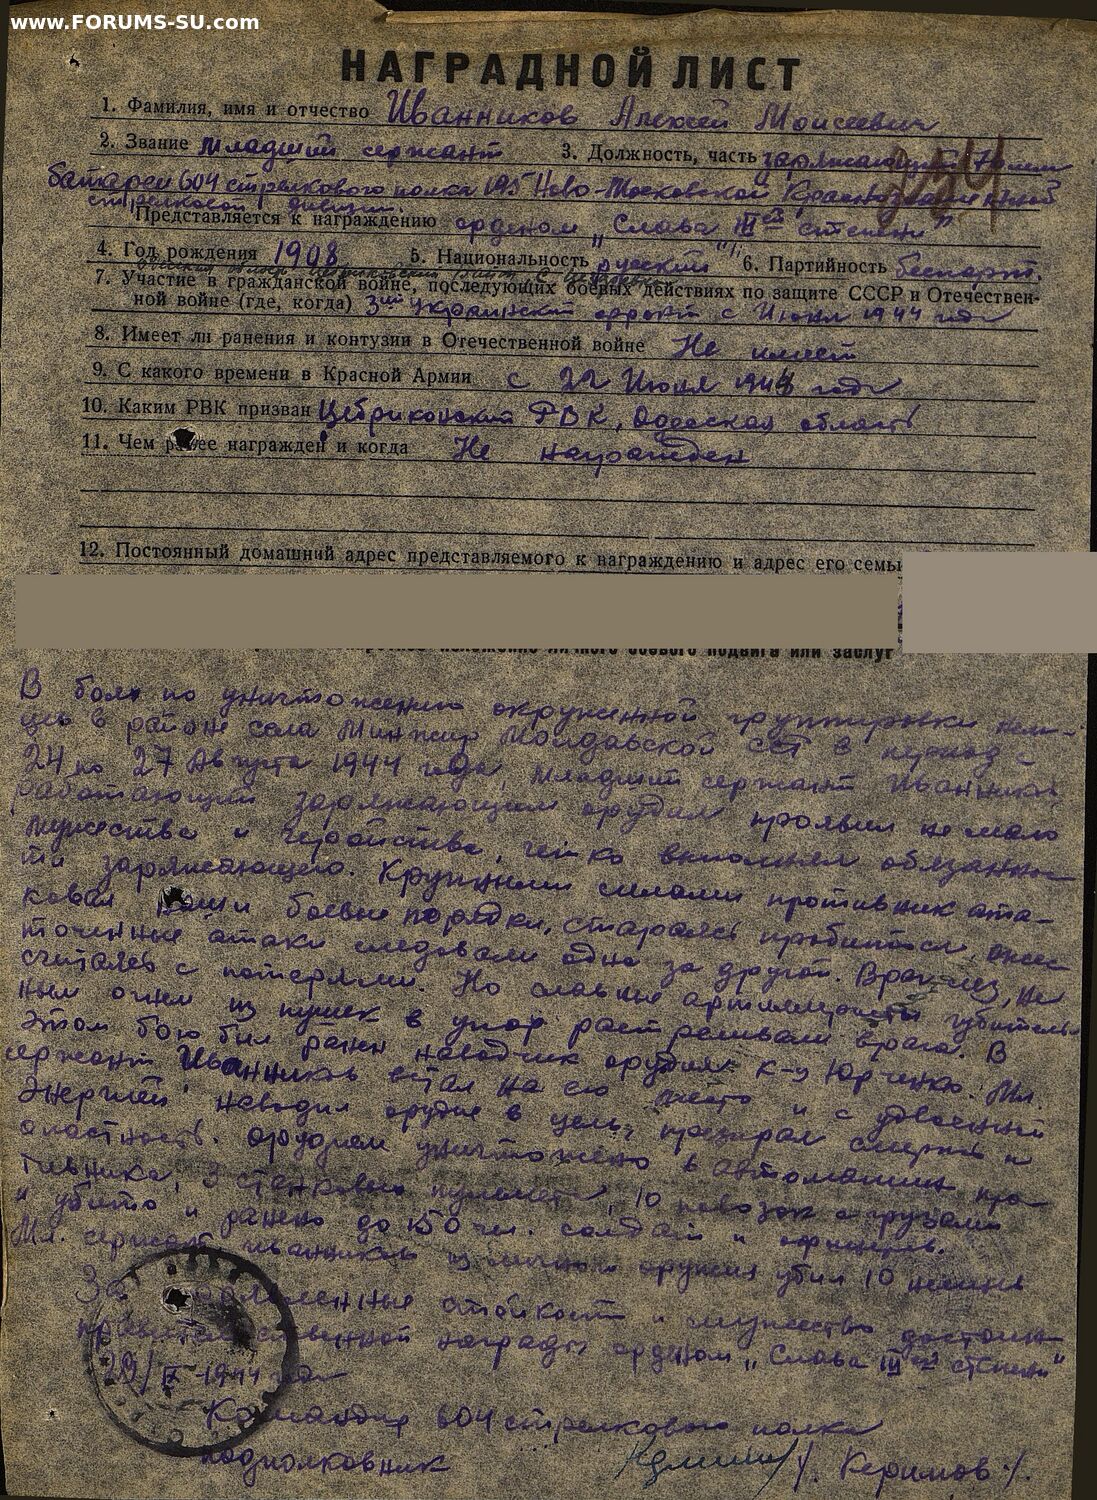 www.FORUMS-SU.com
НАГРАДНОЙ ЛИСТ
1. Фамилия, имя и отчество Иванников Алексей Моисеевич
2. Звание младший сержант 3. Должность, часть заряжающий 76 мм
батареи 604 стрелкового полка 195 Ново-Московской Краснознаменной
стрелковой дивизии.
Представляется к награждению орденом „Слава III ей степени"
4. Год рождения 1908 5. Национальность русский 6. Партийность беспарт.
7. Участие в гражданской войне, последующих боевых действиях по защите СССР и Отечествен-
ной войне (где, когда) 3ий Украинский фронт с Июня 1944 года
8. Имеет ли ранения и контузии в Отечественной войне Не имеет
9. С какого времени в Красной Армии с 22 Июня 1944 года
10. Каким РВК призван Цебриковский РВК, Одесская область
11. Чем ранее награжден и когда Не награжден
12. Постоянный домашний адрес представляемого к награждению и адрес его семьи
изложение личного боевого подвига или заслуг
В боях по уничтожению окруженной группировки нем-
цев в районе села Минжир Молдавской ССР в период с
24 по 27 Августа 1944 года, младший сержант Иванников
работающий заряжающим орудия проявил не мало
мужества и геройства, четко выполнял обязаннос-
ти заряжающего. Крупными силами противник ата-
ковал наши боевые порядки, стараясь пробиться, ожес-
точенные атаки следовали одна за другой. Враг лез, не
считаясь с потерями. Но славные артиллеристы губитель-
ным огнем из пушек в упор расстреливали врага. В
этом бою был ранен наводчик орудия к-ц Юрченко. Мл.
сержант Иванников встал на его место и с удвоенной
энергией наводил орудие в цель, презирая смерть и
опастность. орудием уничтожено 6 автомашин про-
тивника, 3 станковых пулемета, 10 повозок с грузами
и убито и ранено до 150 чел. солдат и офицеров.
Мл. сержант Иванников из личного оружия убил 10 немцев
За проявленные стойкость и мужество достоин
правительственной награды орденом „Слава III ей степени"
IX-1944 года
Командир 604 стрелкового полка
подполковник /. Керимов ./.